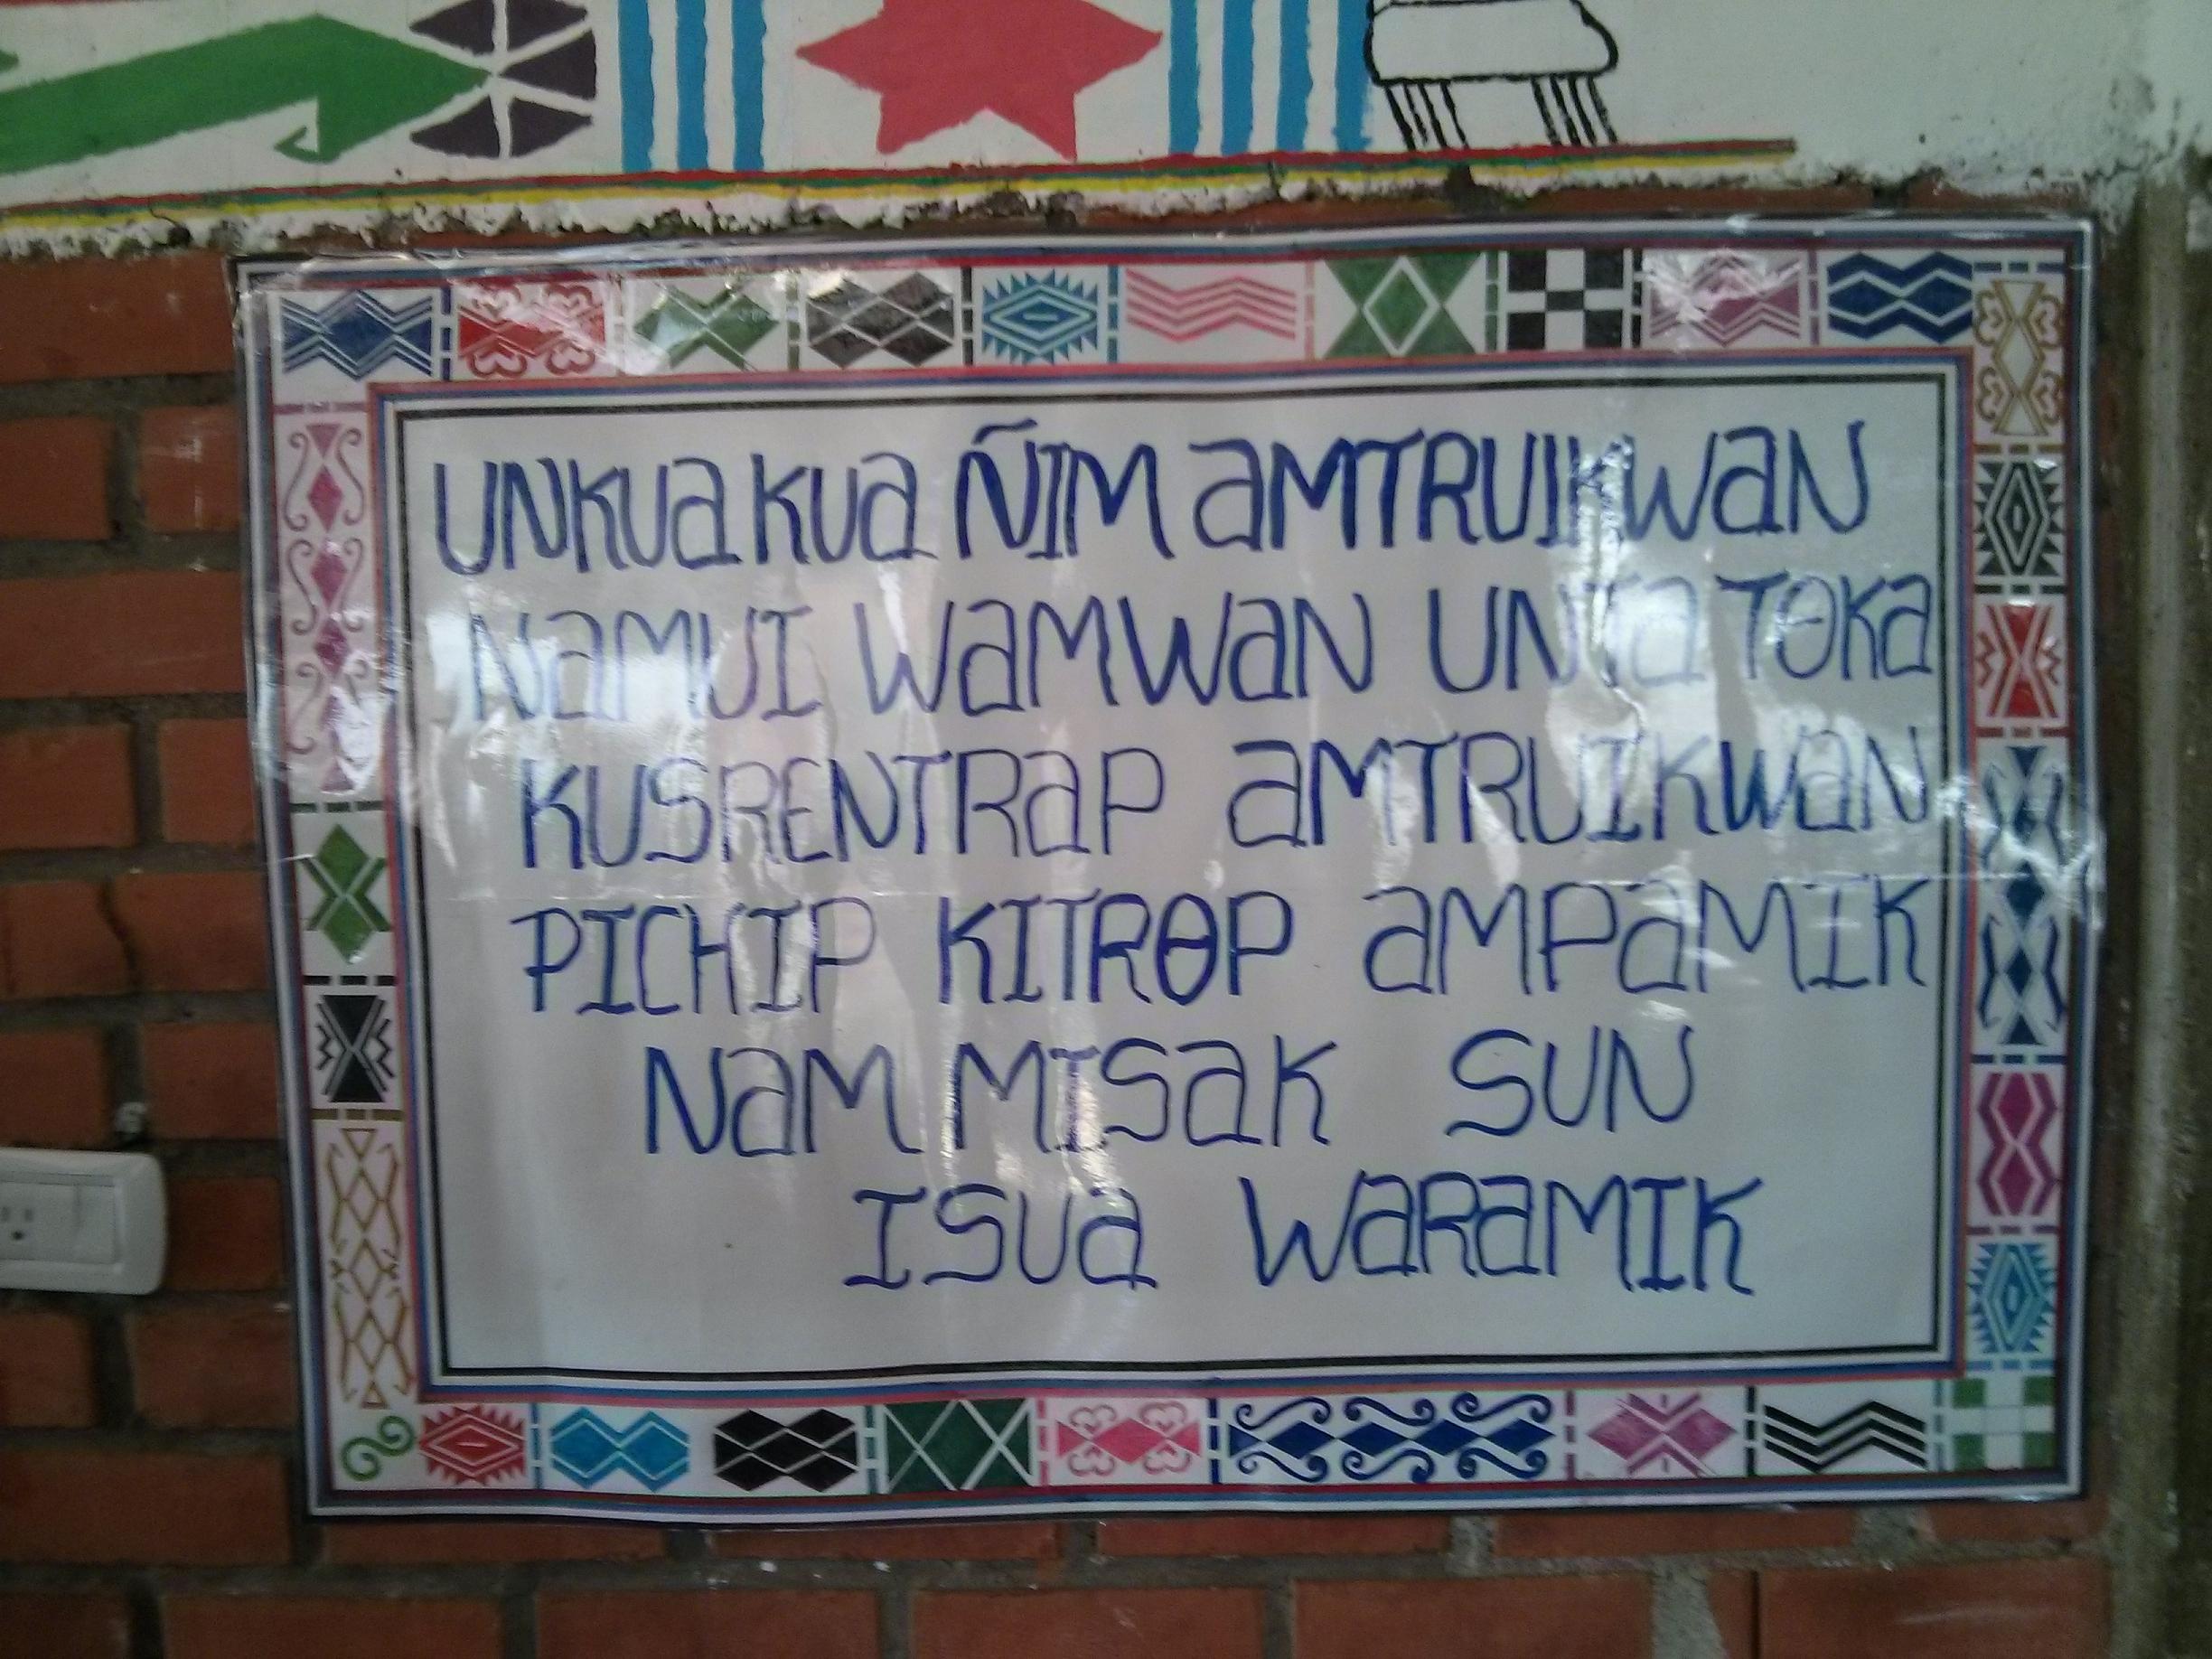 UNKUA KUA ÑIM AMTRUIKWAN
NAMUI WAMWAN UNTA TɵKA
KUSRENTRAP AMTRUIKWAN
PICHIP KITRɵP AMPAMIK
NAM MISAK SUN
ISUA WARAMIK